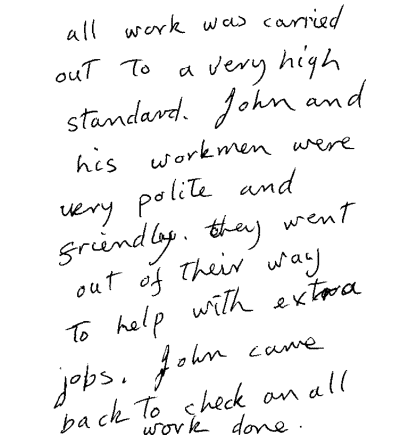 all work was carried
out To a very high
standard. John and
his workmen were
very polite and
friendly. they went
out of their way
To help with extra
jobs. John came
back To check on all
work done.